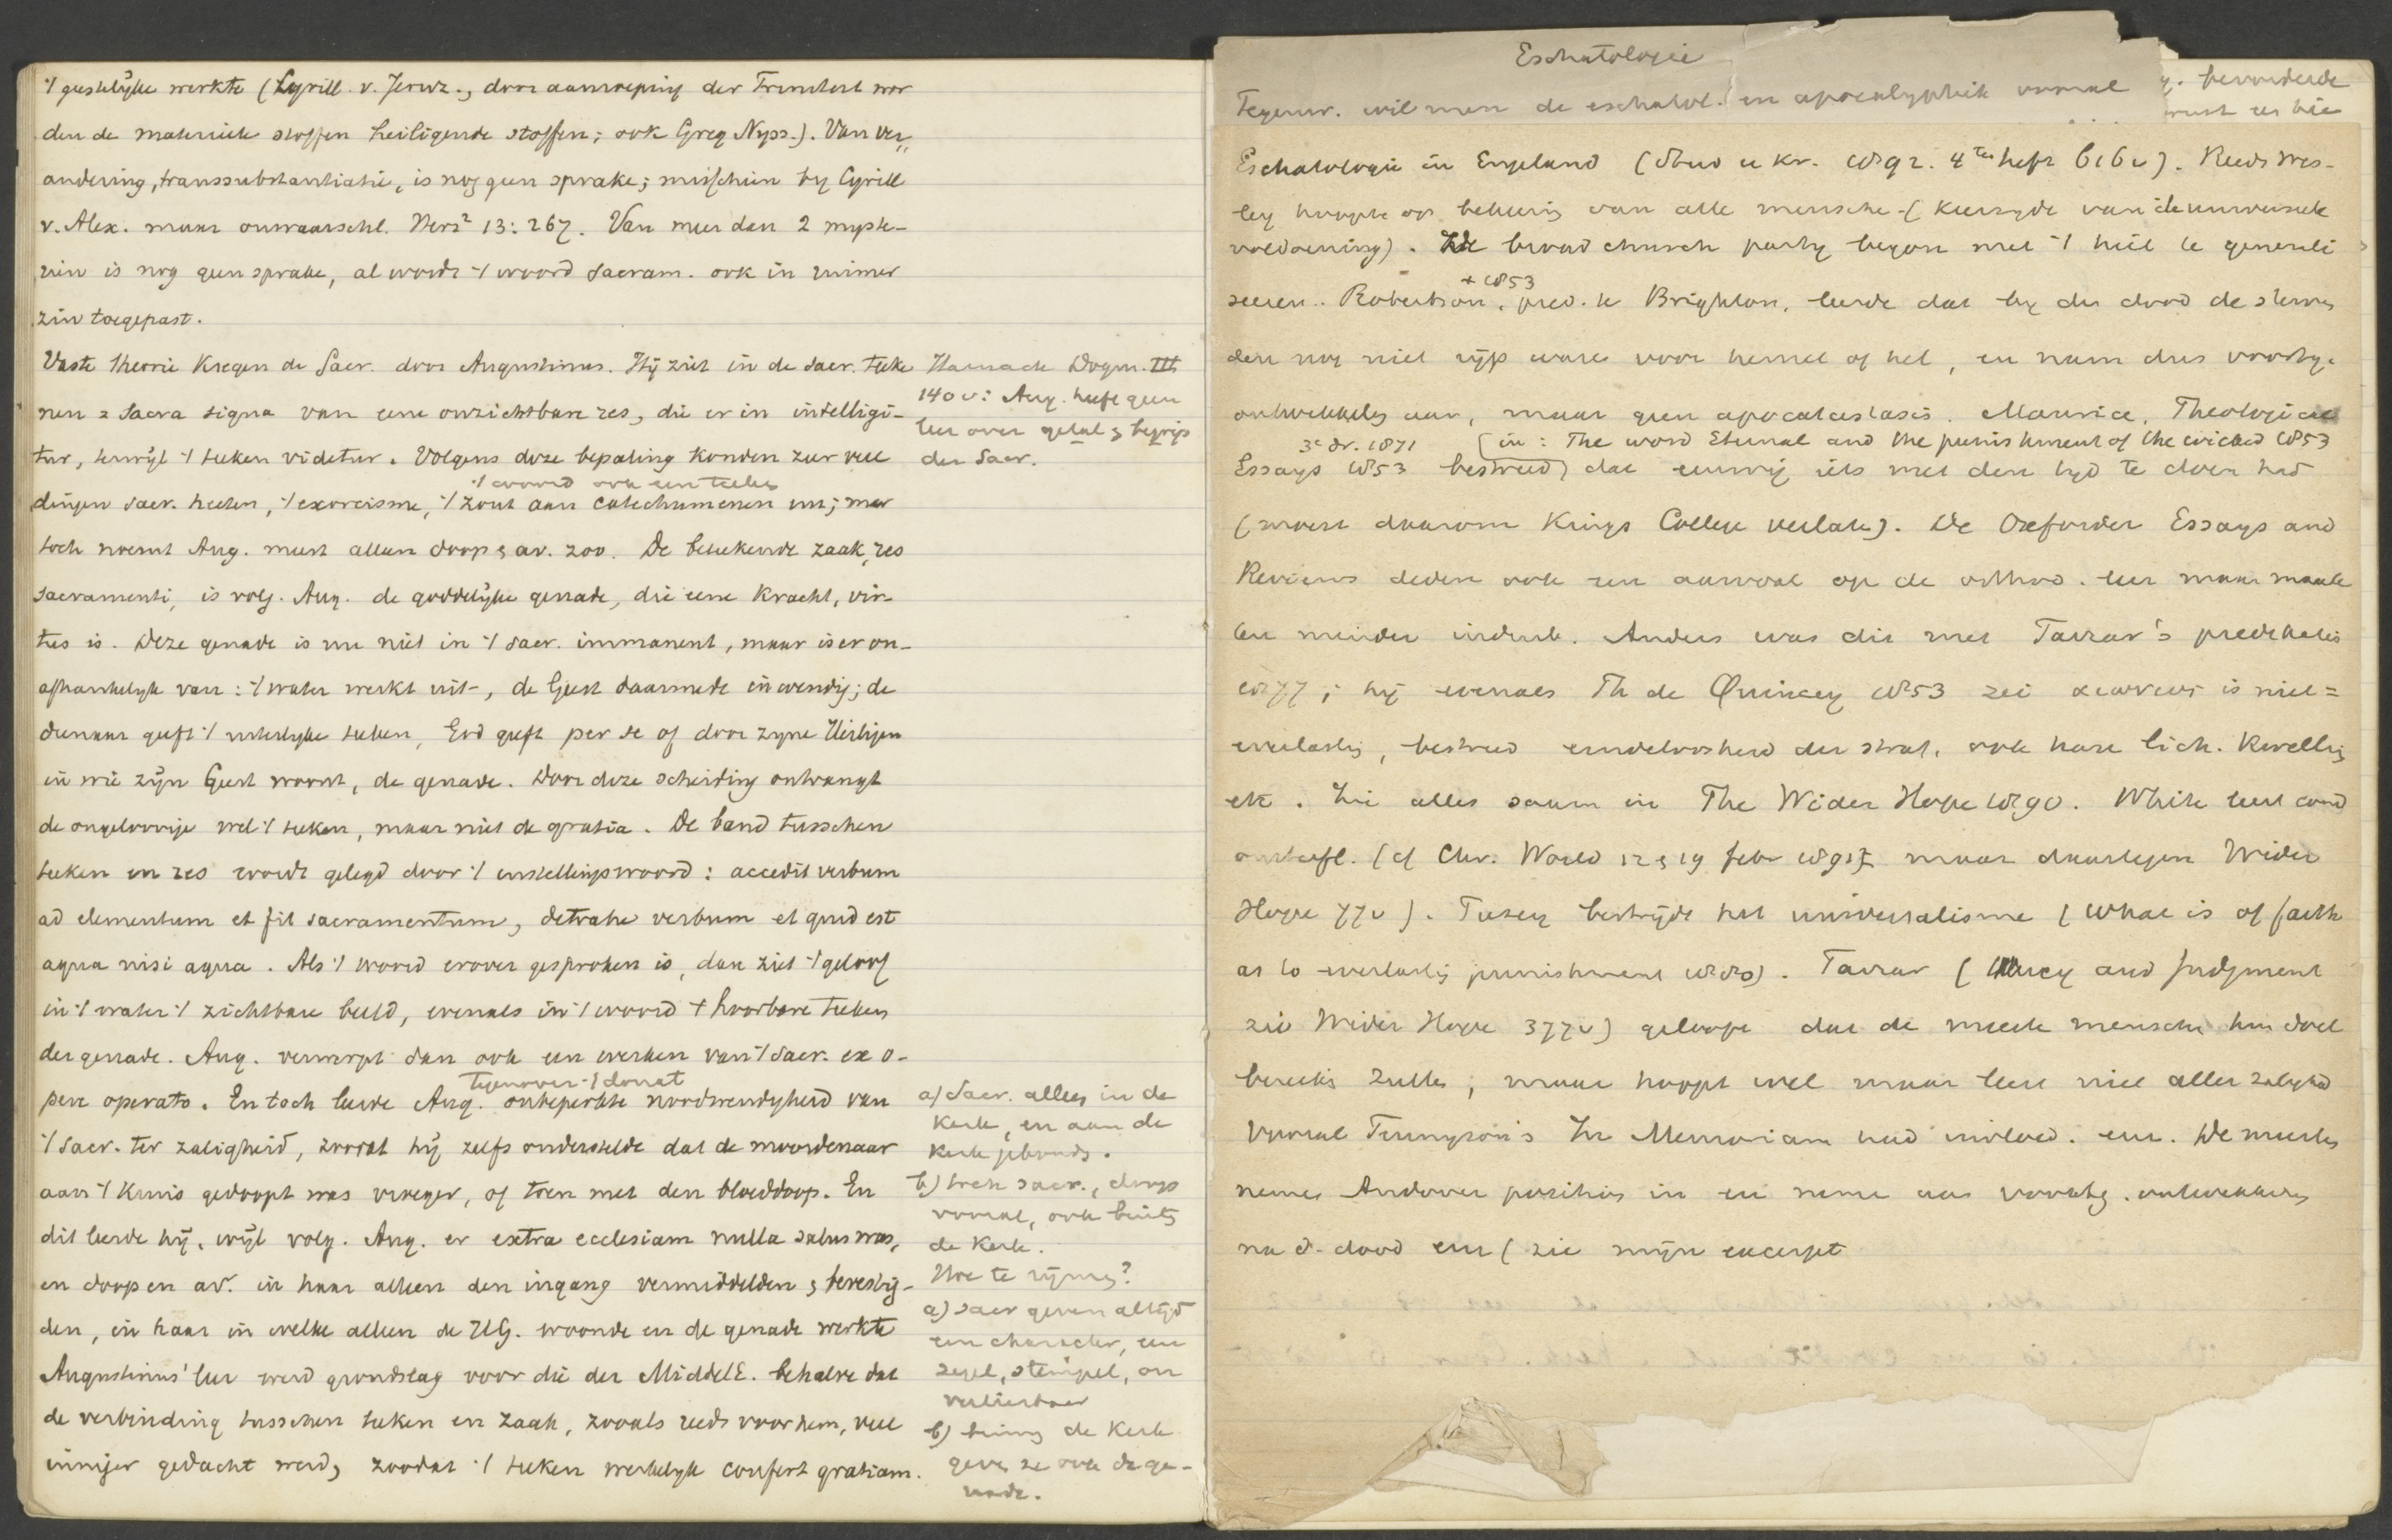 't geestelijke werkte (Cyrill. v. Jeruz., door aanroeping der Triniteit wor
den de materieele stoffen heiligende stoffen; ook Greg Nyss.). Van ver„
andering, transsubstantiatie, is nog geen sprake; misschien by Cyrill
v. Alex. maar onwaarschl. Herz² 13:267. Van meer dan 2 myste-
riën is nog geen sprake, al wordt 't woord sacram. ook in ruimer
zin toegepast.
Vaste theorie kregen de Sacr. door Augustinus. Hij ziet in de sacr. teeke
nen = sacra signa van eene onzichtbare res, die er in intelligi-
tur, terwijl 't teeken videtur. Volgens deze bepaling konden zeer veel
't woord ook een teeken
dingen sacr. heeten, 't exorcisme, 't zout aan catechumenen enz; maar
toch noemt Aug. meest alleen doop & av. zoo. De beteekende zaak, res
sacramenti, is volg. Aug. de goddelijke genade, die eene kracht, vir-
tus is. Deze genade is nu niet in 't sacr. immanent, maar is er on-
afhankelijk van: 't water werkt uit-, de Geest daarmede inwendig; de
dienaar geeft 't uiterlyke teeken, God geeft per se of door zyne Heiligen
in wie zijn Geest woont, de genade. Door deze scheiding ontvangt
de ongeloovige wel 't teeken, maar niet de gratia. De band tusschen
teeken en res wordt gelegd door 't instellingswoord: accedit verbum
ad elementum et fit sacramentum, detrahe verbum et quid est
aqua nisi aqua. Als 't woord erover gesproken is, dan ziet 't geloof
in 't water 't zichtbare beeld, evenals in 't woord 't hoorbare teeken
der genade. Aug. verwerpt dan ook een werken van 't sacr. ex o-
tegenover 't donat
pere operato. En toch leerde Aug. onbeperkte noodwendigheid van
't sacr. ter zaligheid, zoodat hij zelfs onderstelde dat de moordenaar
aan 't kruis gedoopt was vroeger, of toen met den bloeddoop. En
dit leerde hij, wijl volg. Aug. er extra ecclesiam nulla salus was,
en doop en av. in haar alleen den ingang vermiddelden & bevestig-
den, in haar in welke alleen de HG. woonde en de genade werkte
Augustinus' leer werd grondslag voor die der MiddelE. behalve dat
de verbinding tusschen teeken en zaak, zooals reeds voor hem, veel
inniger gedacht werd, zoodat 't teeken werkelyk confert gratiam.
Harnack Dogm. III
140 v: Aug. heeft geen
leer over getal & begrip
der Sacr.
a) Sacr. alleen in de
Kerk, en aan de
Kerk gebonden.
b) toch sacr., doop
vooral, ook buiten
de Kerk.
Hoe te rijmen?
a) sacr geven altijd
een character, een
zegel, stempel, on
verliesbaar
b) binnen de Kerk
geven ze ook de ge-
nade.
Eschatologie
Tegenw. wil men de eschatol. en apocalyptiek vooral
bevorderde
Eschatologie in Engeland (Stud u Kr. 1892. 4tes heft 616v). Reeds Wes-
ley hoopte op bekeering van alle menschen (keerzyde van de universeele
voldoening). De broad church party begon met 't heil te generali
† 1853
seeren. Robertson, pred. te Brighton, leerde dat by den dood de sterven
den nog niet rijp waren voor hemel of hel, en nam dus voortg.
ontwikkeling aan, maar geen apocatastasis. Maurice, Theological
3e dr. 1871 (in: The word Eternal and the punishment of the wicked 1853
Essays 1853 bestreed) dat eeuwig iets met den tyd te doen had
(moest daarom Kings College verlaten). De Oxforder Essays and
Reviews deden ook een aanval op de orthod. leer maar maak
ten minder indruk. Anders was dit met Farrar's predikaties
1877; hij evenals Th de Quincey 1853 zei αιωνιος is niet =
everlasting, bestreed eindeloosheid der straf, ook hare lich. kwelling
etc. Zie alles saam in The Wider Hope 1890. White leert cond
onsterfl. (cf Chr. World 12 & 19 febr 1892 maar daartegen Wider
Hope 77v). Pusey bestrijdt het universalisme (What is of faith
as to everlasting punishment 1880). Farrar (Mercy and Judgment
zie Wider Hope 377v) gelooft dat de meeste menschen hun doel
bereiken zullen, maar hoopt wel maar leert niet aller zaligheid
Vooral Tennyson's In Memoriam had invloed. enz. De meesten
nemen Andover positie in en nemen aan voortg. ontwikkeling
na d. dood enz (zie mijn excerpt